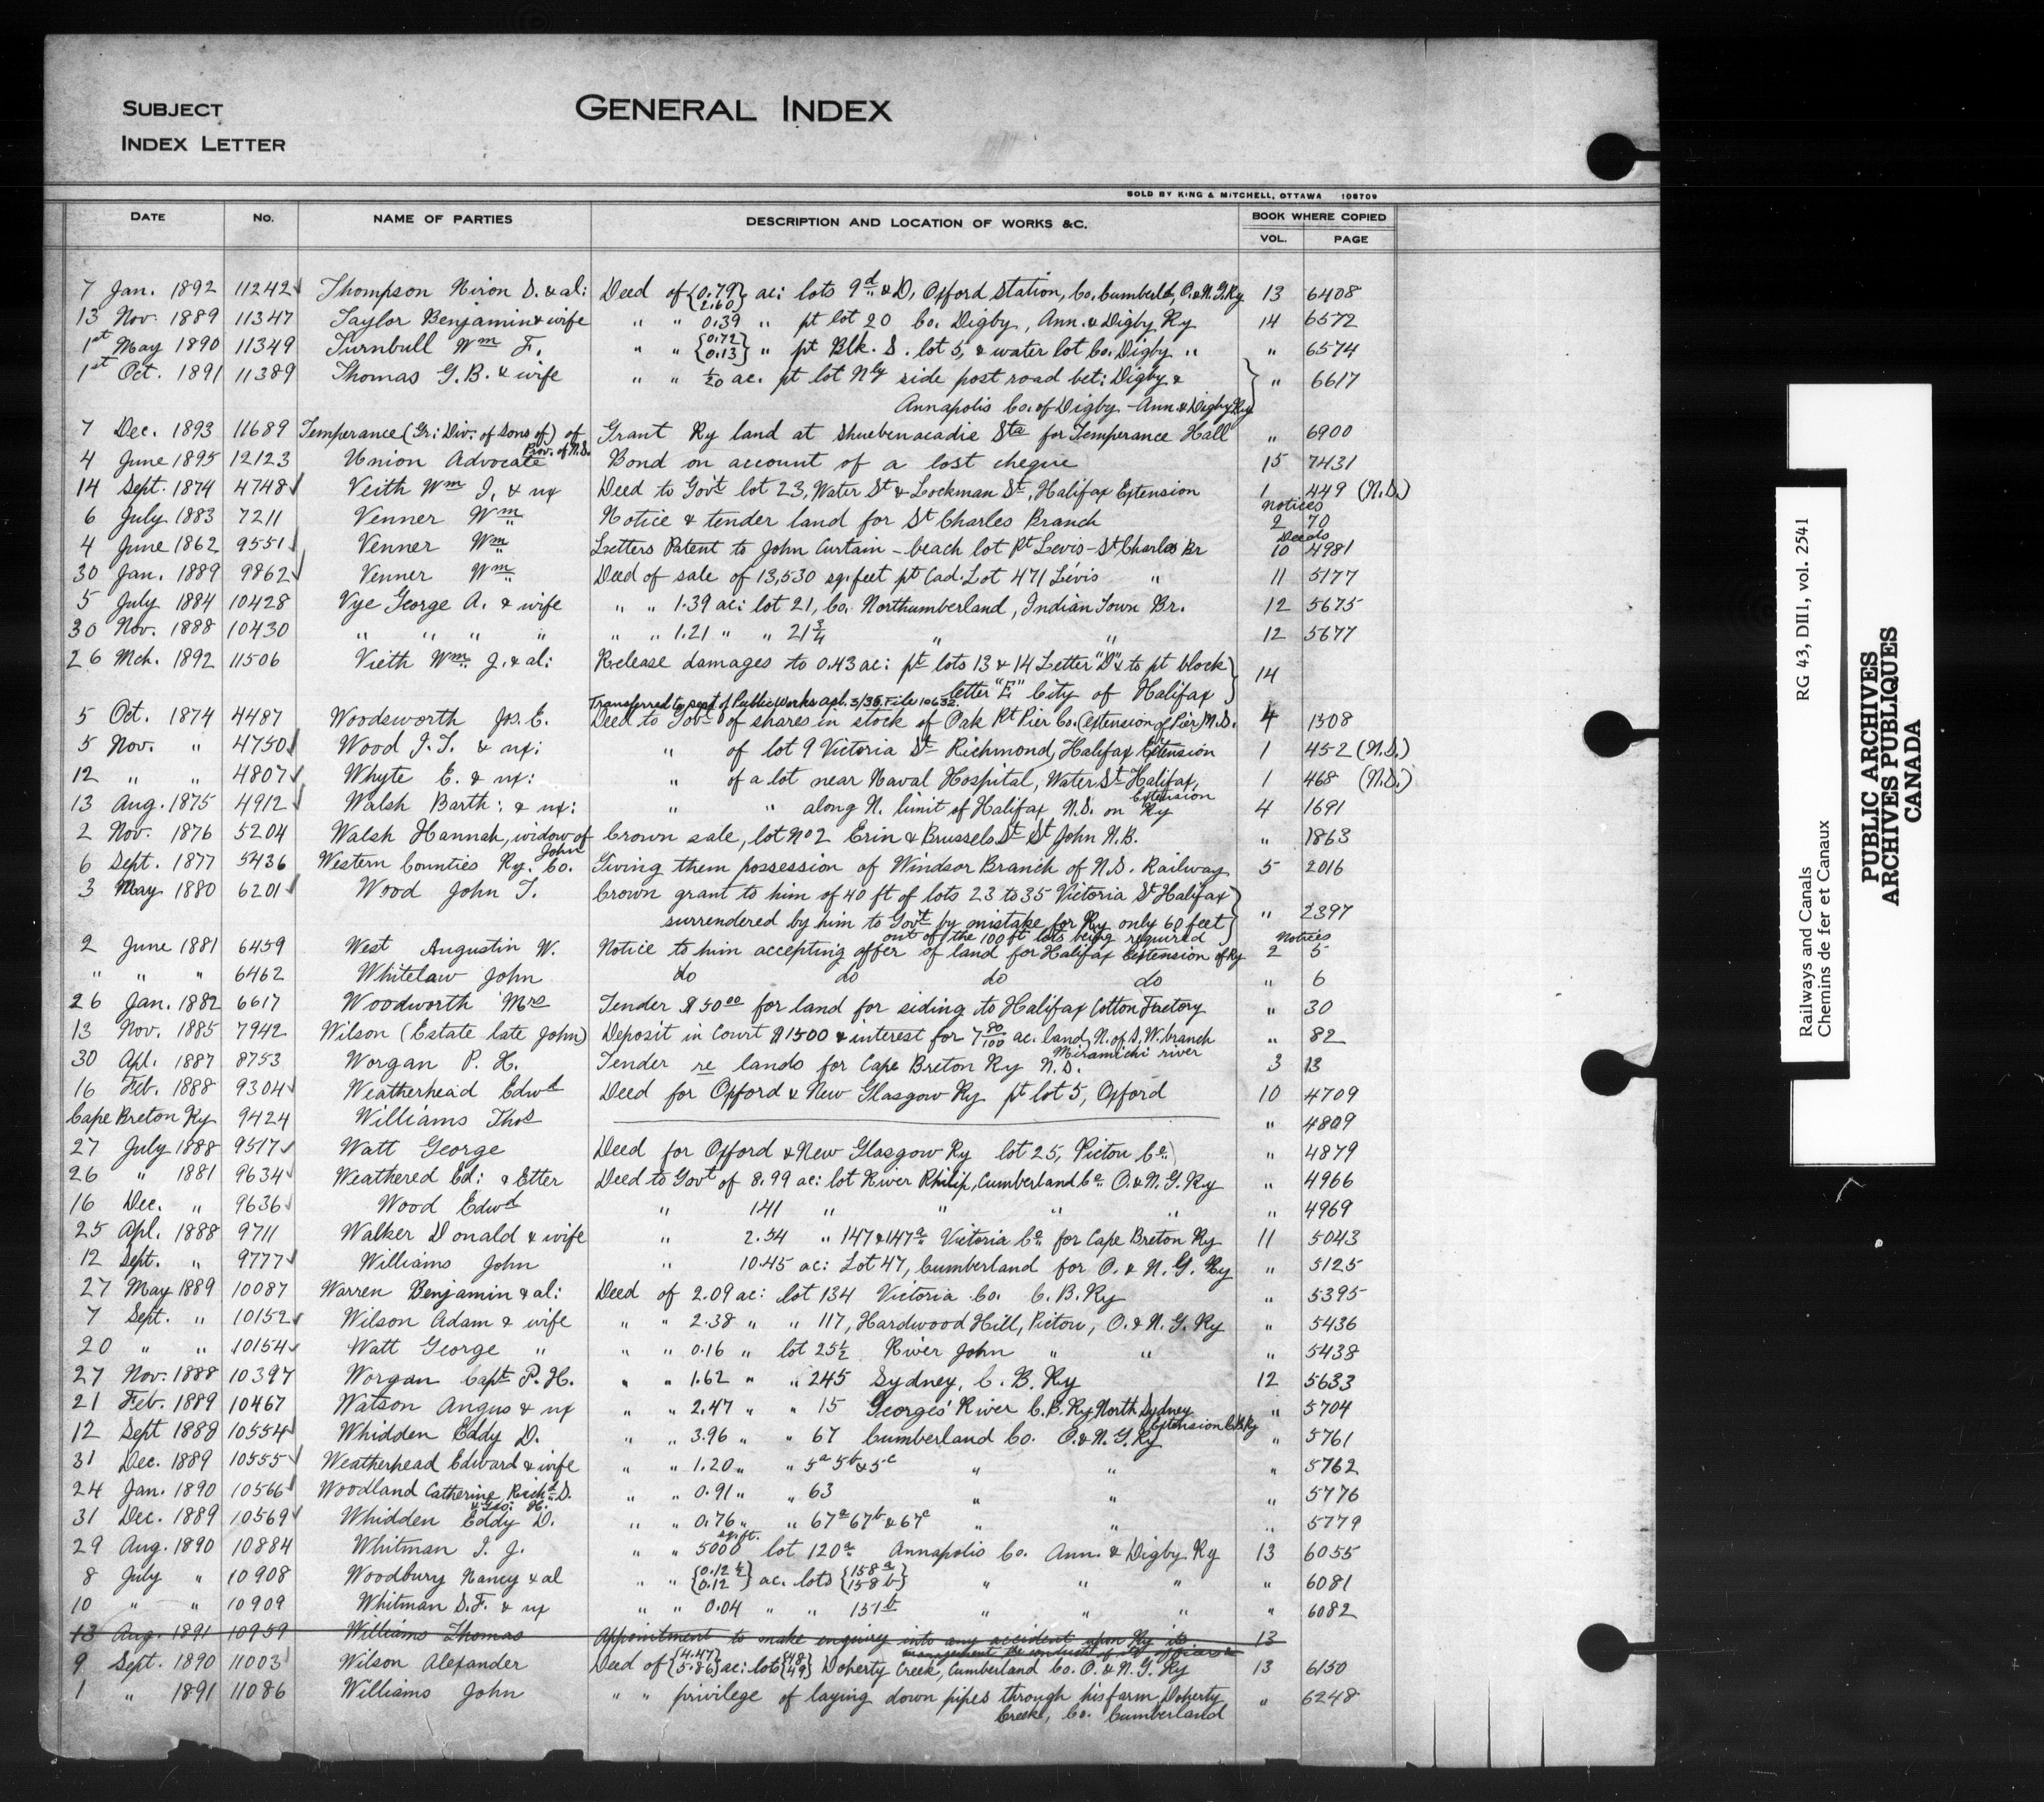 SUBJECT
GENERAL INDEX
INDEX LETTER
SOLD BY KING & MITCHELL, OTTAWA 108709
DATE No. NAME OF PARTIES DESCRIPTION AND LOCATION OF WORKS &C. BOOK WHERE COPIED
VOL. PAGE
7 Jan. 1892 11242 ✓ Thompson Hiron S. & al: Deed of {0.79 2.60} ac: lots 9d & D, Oxford Station, Co. Cumberld, O. & N. G. Ry 13 6408
13 Nov. 1889 11347 Taylor Benjamin & wife " " 0.39 " pt lot 20 Co. Digby, Ann. & Digby Ry 14 6572
1st May 1890 11349 Turnbull Wm F. " " {0.72 0.13} " pt Blk. S. lot 5, & water lot Co. Digby " " 6574
1st Oct. 1891 11389 Thomas G. B. & wife " " 1/20 ac. pt lot Nly side post road bet: Digby & " 6617
Annapolis Co. of Digby - Ann. & Digby Ry
7 Dec. 1893 11689 Temperance (Gr: Div: of Sons of) of Grant Ry land at Shuebenacadie Sta for Temperance Hall " 6900
Prov. of N.S.
4 June 1895 12123 Union Advocate Bond on account of a lost cheque 15 7431
14 Sept. 1874 4748 ✓ Veith Wm J. & ux Deed to Govt lot 23, Water St & Lockman St, Halifax Extension 1 449 (N.S.)
Notices
6 July 1883 7211 Venner Wm Notice & tender land for St Charles Branch 2 70
Deeds
4 June 1862 9551 ✓ Venner Wm Letters Patent to John Curtain - beach lot Pt Levis - St Charles Br 10 4981
30 Jan. 1889 9862 ✓ Venner Wm Deed of sale of 13,530 sq. feet pt Cad. Lot 471 Lévis " 11 5177
5 July 1884 10428 Vye George A. & wife " " 1.39 ac: lot 21, Co. Northumberland, Indian Town Br. 12 5675
30 Nov. 1888 10430 " " " " " " 1.21 " " 21 3/4 " " 12 5677
26 Mch. 1892 11506 Vieth Wm J. & al: Release damages to 0.43 ac: pt lots 13 & 14 Letter "D" & to pt block 14
letter "E" City of Halifax
Transferred to Dept of Public Works Apl. 3/35. File 10632.
5 Oct. 1874 4487 Woodsworth Jos. E. Deed to Govt of shares in stock of Oak Pt Pier Co. (extension of Pier) N.S. 4 1308
5 Nov. " 4750 ✓ Wood J. T. & ux: " of lot 9 Victoria St Richmond, Halifax Extension 1 452 (N.S.)
12 " " 4807 ✓ Whyte E. & ux: " of a lot near Naval Hospital, Water St Halifax, 1 468 (N.S.)
Extension
13 Aug. 1875 4912 ✓ Walsh Barth: & ux: " " along N. limit of Halifax, N.S. on Ry 4 1691
2 Nov. 1876 5204 Walsh Hannah, widow of Crown sale, lot No 2 Erin & Brussels St St John N.B. " 1863
John
6 Sept. 1877 5436 Western Counties Ry. Co. Giving them possession of Windsor Branch of N.S. Railway 5 2016
3 May 1880 6201 ✓ Wood John T. Crown grant to him of 40 ft of lots 23 to 35 Victoria St Halifax
surrendered by him to Govt by mistake for Ry only 60 feet " 2397
out of the 100 ft lots being required Notices
2 June 1881 6459 West Augustin W. Notice to him accepting offer of land for Halifax extension of Ry 2 5
" " " 6462 Whitelaw John do do do do " 6
26 Jan. 1882 6617 Woodworth Mrs Tender $50.00 for land for siding to Halifax Cotton Factory " 30
13 Nov. 1885 7942 Wilson (Estate late John) Deposit in Court $1500 & interest for 7 90/100 ac. land, N. of S.W. branch " 82
Miramichi river
30 Apl. 1887 8753 Worgan P. H. Tender re lands for Cape Breton Ry N.S. 3 13
16 Feb. 1888 9304 ✓ Weatherhead Edwd Deed for Oxford & New Glasgow Ry pt lot 5, Oxford 10 4709
Cape Breton Ry 9424 Williams Thos " 4809
27 July 1888 9517 ✓ Watt George Deed for Oxford & New Glasgow Ry lot 25, Pictou Co. " 4879
26 " 1881 9634 ✓ Weathered Ed: & Etter Deed to Govt of 8.99 ac: lot River Philip, Cumberland Co. O. & N. G. Ry " 4966
16 Dec. " 9636 ✓ Wood Edwd " 141 " " " " " 4969
25 Apl. 1888 9711 Walker Donald & wife " 2.54 " 147 & 147a Victoria Co. for Cape Breton Ry 11 5043
12 Sept. " 9777 ✓ Williams John " 10.45 ac: Lot 47, Cumberland for O. & N. G. Ry " 5125
27 May 1889 10087 Warren Benjamin & al: Deed of 2.09 ac: lot 134 Victoria Co. C. B. Ry " 5395
7 Sept. " 10152 ✓ Wilson Adam & wife " " 2.38 " " 117, Hardwood Hill, Pictou, O. & N. G. Ry " 5436
20 " " 10154 ✓ Watt George " " " 0.16 " lot 25 1/2 River John " " " 5438
27 Nov. 1888 10397 Worgan Capt. P. H. " " 1.62 " " 245 Sydney, C. B. Ry 12 5633
21 Feb. 1889 10467 Watson Angus & ux " " 2.47 " " 15 Georges' River C. B. Ry, North Sydney " 5704
Extension C.B.Ry
12 Sept 1888 10554 ✓ Whidden Eddy D. " " 3.96 " " 67 Cumberland Co. O. & N. G. Ry " 5761
31 Dec. 1889 10555 ✓ Weatherhead Edward & wife " " 1.20 " " 5a 5b & 5c " " " 5762
24 Jan. 1890 10566 ✓ Woodland Catherine Richd S. " " 0.91 " " 63 " " " 5776
& Geo: H.
31 Dec. 1889 10569 ✓ Whidden Eddy D. " " 0.76 " " 67a 67b & 67c " " " 5779
sq. ft.
29 Aug. 1890 10884 Whitman I. J. " " 5000 lot 120a Annapolis Co. Ann. & Digby Ry 13 6055
8 July " 10908 Woodbury Nancy & al " " {0.12 1/2 0.12} ac. lots {158a 158b} " " " " 6081
10 " " 10909 Whitman S. F. & ux " " 0.04 " " 151b " " " " 6082
13 Aug. 1891 10959 Williams Thomas Appointment to make enquiry into any accident upon Ry its 13
management & conduct of its officers &
9 Sept. 1890 11003 Wilson Alexander Deed of {4.47 5.86} ac: lots {48 49} Doherty Creek, Cumberland Co. O. & N. G. Ry 13 6150
1 " 1891 11086 Williams John " " privilege of laying down pipes through his farm, Doherty " 6248
Creek, Co. Cumberland
Railways and Canals
Chemins de fer et Canaux
RG 43, DII1, vol. 2541
PUBLIC ARCHIVES
ARCHIVES PUBLIQUES
CANADA